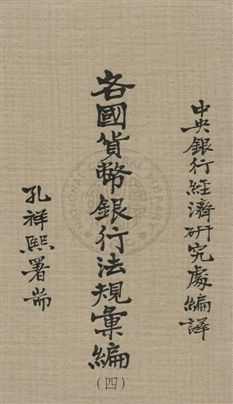 中央銀行經濟研究處編譯
各國貨幣銀行法規彙編
(四)
孔祥熙署耑